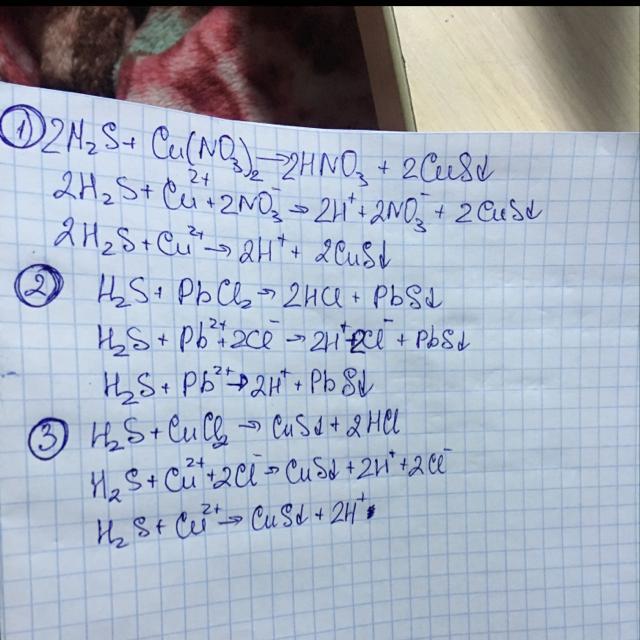 1) 2H₂S + Cu(NO₃)₂ → 2HNO₃ + 2CuS↓
2H₂S + Cu²⁺ + 2NO₃⁻ → 2H⁺ + 2NO₃⁻ + 2CuS↓
2H₂S + Cu²⁺ → 2H⁺ + 2CuS↓
2 H₂S + PbCl₂ → 2HCl + PbS↓
H₂S + Pb²⁺ + 2Cl⁻ → 2H⁺ + 2Cl⁻ + PbS↓
H₂S + Pb²⁺ → 2H⁺ + PbS↓
3 H₂S + CuCl₂ → CuS↓ + 2HCl
H₂S + Cu²⁺ + 2Cl⁻ → CuS↓ + 2H⁺ + 2Cl⁻
H₂S + Cu²⁺ → CuS↓ + 2H⁺